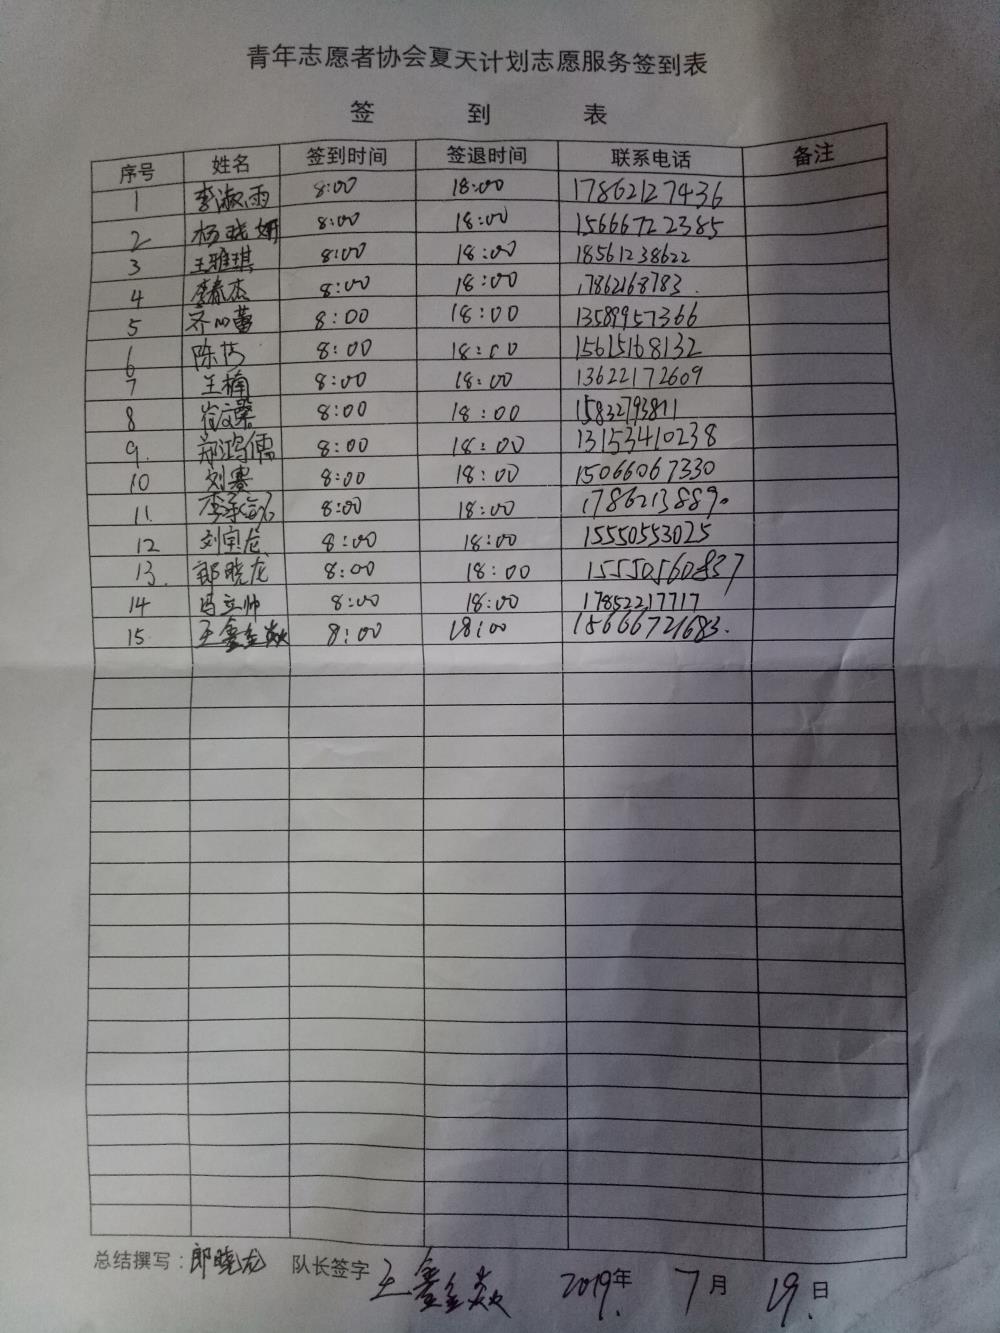 青年志愿者协会夏天计划志愿服务签到表
签 到 表
序号 姓名 签到时间 签退时间 联系电话 备注
1 李淑雨 8:00 18:00 17862127436
2 杨晓妍 8:00 18:00 15666722385
3 王雅琪 8:00 18:00 18561238622
4 李春杰 8:00 18:00 17862168783.
5 齐心蕾 8:00 18:00 13589957366
6 陈 8:00 18:00 15615168132
7 王楠 8:00 18:00 13622172609
8 8:00 18:00 15832793811
9. 郑鸿儒 8:00 18:00 13153410238
10 刘赛 8:00 18:00 15066067330
11. 李承 8:00 18:00
12 刘宾龙 8:00 18:00 15550553025
13. 郎晓龙 8:00 18:00 15550560837
14 冯立帅 8:00 18:00 17852217717
15. 王鑫金焱 8:00 18:00 15666721683.
总结撰写：郎晓龙 队长签字 王鑫金焱 2019年. 7月 19.日